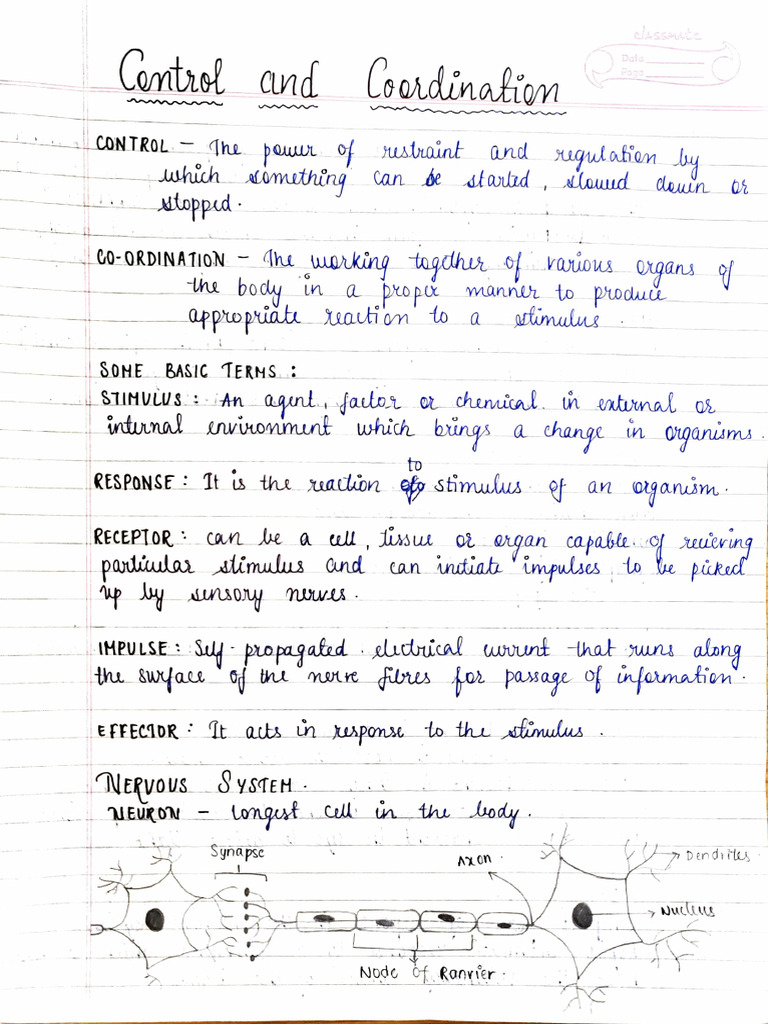 classmate
Date
Page
Control and Coordination
CONTROL – The power of restraint and regulation by
which something can be started, slowed down or
stopped.
CO-ORDINATION – The working together of various organs of
the body in a proper manner to produce
appropriate reaction to a stimulus.
SOME BASIC TERMS :
STIMULUS : An agent, factor or chemical in external or
internal environment which brings a change in organisms.
to
RESPONSE : It is the reaction stimulus of an organism.
RECEPTOR : can be a cell, tissue or organ capable of recieving
particular stimulus and can initiate impulses to be picked
up by sensory nerves.
IMPULSE : Self-propagated electrical current that runs along
the surface of the nerve fibres for passage of information.
EFFECTOR : It acts in response to the stimulus.
NERVOUS SYSTEM.
NEURON – longest cell in the body.
Synapse
Axon.
Dendrites
Nucleus
Node of Ranvier.